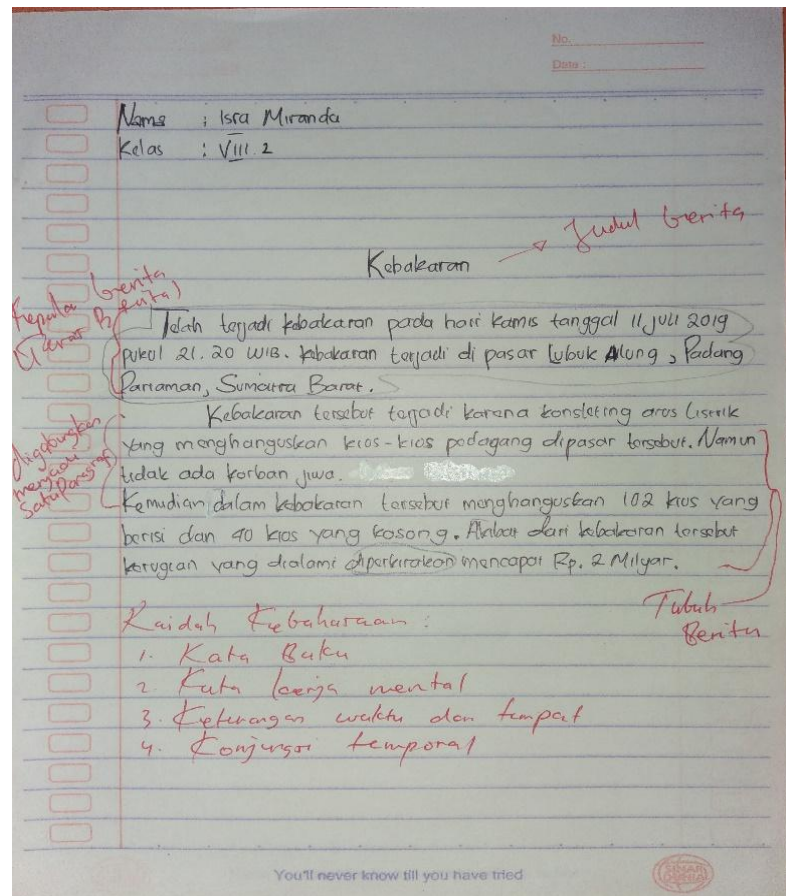 No.
Date :
Nama : Isra Miranda
Kelas : VIII.2
Judul berita
Kebakaran
Kepala berita
(Teras Berita)
Telah terjadi kebakaran pada hari kamis tanggal 11 Juli 2019
pukul 21.20 WIB. kebakaran terjadi di pasar Lubuk Alung, Padang
Pariaman, Sumatra Barat.
Kebakaran tersebut terjadi karena konsleting arus listrik
digabungkan
menjadi
satu paragraf
yang menghanguskan kios-kios pedagang dipasar tersebut. Namun
tidak ada korban jiwa.
Kemudian dalam kebakaran tersebut menghanguskan 102 kios yang
berisi dan 40 kios yang kosong. Akibat dari kebakaran tersebut
kerugian yang dialami diperkirakan mencapai Rp. 2 Milyar.
Tubuh
Berita
Kaidah Kebahasaan :
1. Kata Baku
2. Kata kerja mental
3. Keterangan waktu dan tempat
4. Konjungsi temporal
You'll never know till you have tried
SINAR
DUNIA